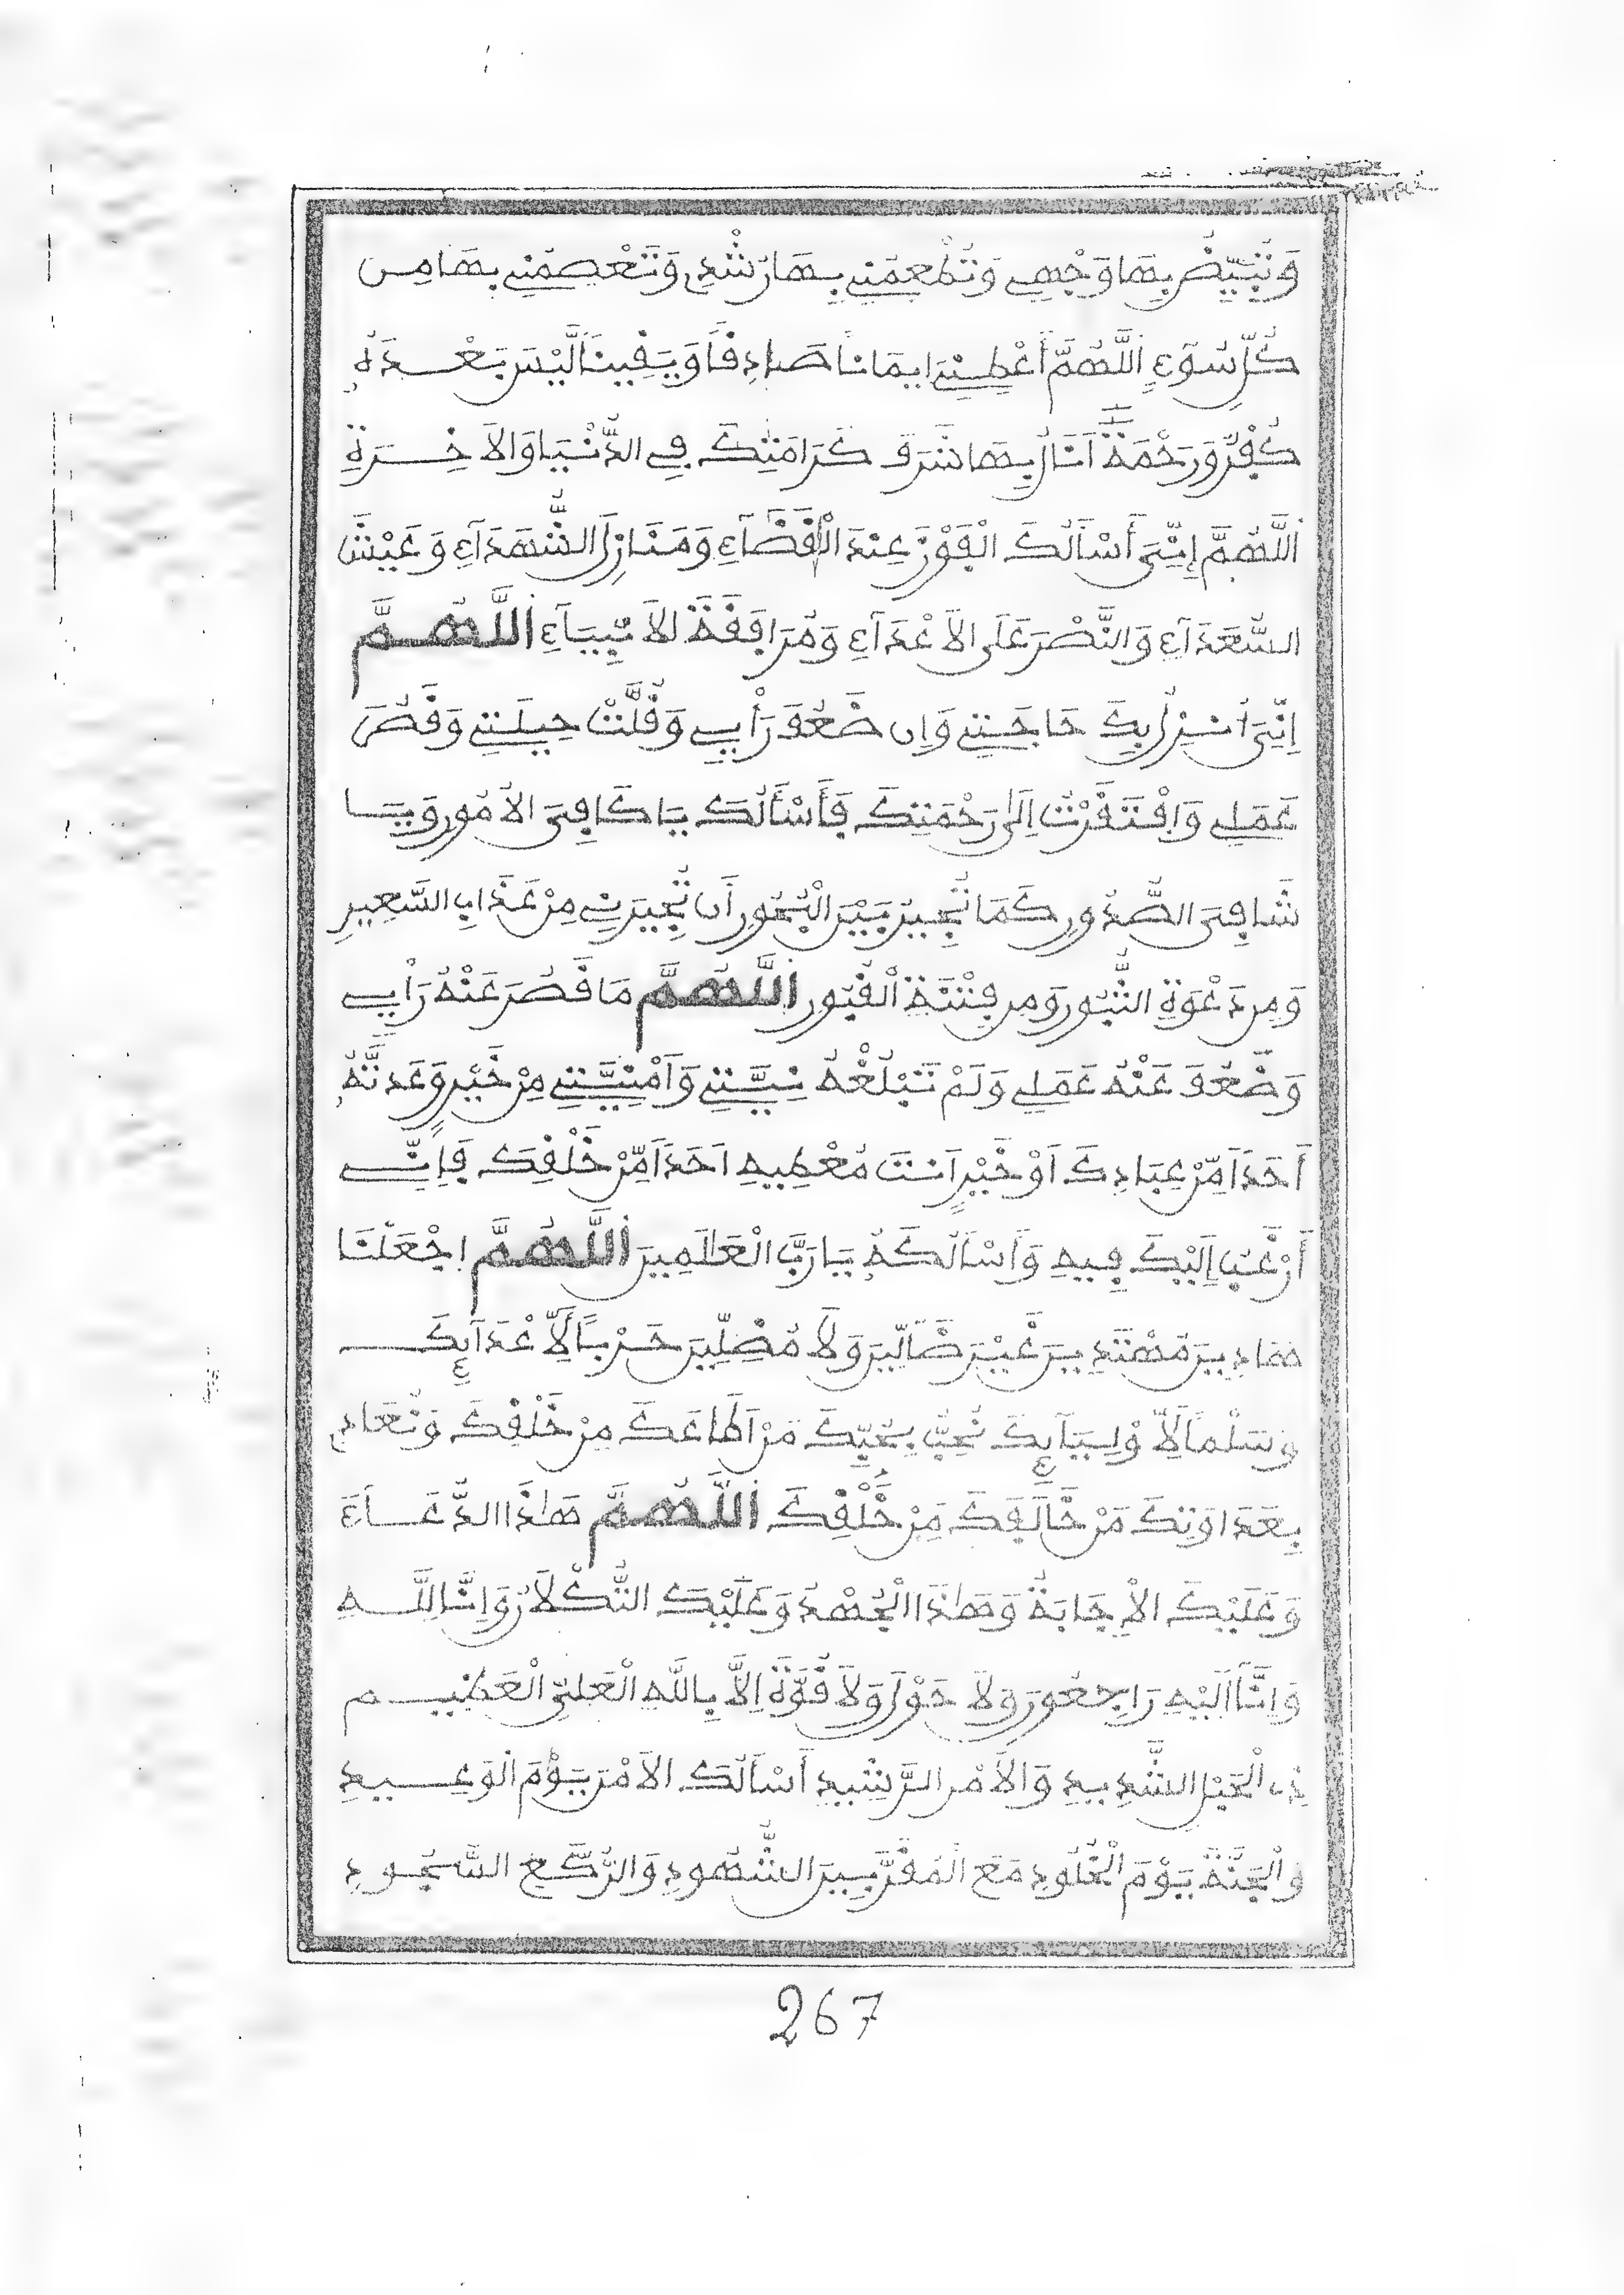 وَتُبَيِّضُ بِهَا وَجْهِي وَتُطْعِمُنِي بِهَا رُشْدِي وَتَعْصِمُنِي بِهَا مِن
كُلِّ سُوٓءٍ اَللَّهُمَّ أَعْطِنِي إِيمَانًا صَادِقًا وَيَقِينًا لَيْسَ بَعْدَهُ
كُفْرٌ وَرَحْمَةً أَنَالُ بِهَا شَرَفَ كَرَامَتِكَ فِي الدُّنْيَا وَالاَخِرَةِ
اَللَّهُمَّ إِنِّيَ أَسْأَلُكَ الْفَوْزَ عِنْدَ الْقَضَآءِ وَمَنَازِلَ الشُّهَدَآءِ وَعَيْشَ
السُّعَدَآءِ وَالنَّصْرَ عَلَى الاَعْدَآءِ وَمُرَافَقَةَ الاَنْبِيَآءِ اَللَّهُمَّ
إِنِّيَ أُنْزِلُ بِكَ حَاجَتِي وَإِن ضَعُفَ رَأْيِي وَقَلَّتْ حِيلَتِي وَقَصُرَ
عَمَلِي وَافْتَقَرْتُ إِلَى رَحْمَتِكَ فَأَسْأَلُكَ يَا كَافِيَ الاُمُورِ وَيَا
شَافِيَ الصُّدُورِ كَمَا تُجِيرُ بَيْنَ الْبُحُورِ أَن تُجِيرَنِي مِنْ عَذَابِ السَّعِيرِ
وَمِن دَعْوَةِ الثُّبُورِ وَمِن فِتْنَةِ الْقُبُورِ اَللَّهُمَّ مَا قَصُرَ عَنْهُ رَأْيِي
وَضَعُفَ عَنْهُ عَمَلِي وَلَمْ تَبْلُغْهُ نِيَّتِي وَأُمْنِيَّتِي مِنْ خَيْرٍ وَعَدتَّهُ
أَحَدًا مِّنْ عِبَادِكَ أَوْ خَيْرٍ أَنتَ مُعْطِيهِ أَحَدًا مِّنْ خَلْقِكَ فَإِنِّي
أَرْغَبُ إِلَيْكَ فِيهِ وَأَسْأَلُكَهُ يَا رَبَّ الْعَالَمِينَ اَللَّهُمَّ اجْعَلْنَا
هَادِينَ مُهْتَدِينَ غَيْرَ ضَآلِّينَ وَلاَ مُضِلِّينَ حَرْبًا لِّأَعْدَآئِكَ
وَسَلْمًا لِّأَوْلِيَآئِكَ نُحِبُّ بِحُبِّكَ مَنْ أَطَاعَكَ مِنْ خَلْقِكَ وَنُعَادِي
بِعَدَاوَتِكَ مَنْ خَالَفَكَ مِنْ خَلْقِكَ اَللَّهُمَّ هَٰذَا الدُّعَآءُ
وَعَلَيْكَ الاِجَابَةُ وَهَٰذَا الْجُهْدُ وَعَلَيْكَ التُّكْلاَنُ وَإِنَّا لِلَّهِ
وَإِنَّآ إِلَيْهِ رَاجِعُونَ وَلاَ حَوْلَ وَلاَ قُوَّةَ إِلاَّ بِاللَّهِ الْعَلِيِّ الْعَظِيمِ
ذِي الْحَبْلِ الشَّدِيدِ وَالاَمْرِ الرَّشِيدِ أَسْأَلُكَ الاَمْنَ يَوْمَ الْوَعِيدِ
وَالْجَنَّةَ يَوْمَ الْخُلُودِ مَعَ الْمُقَرَّبِينَ الشُّهُودِ وَالرُّكَّعِ السُّجُودِ
267